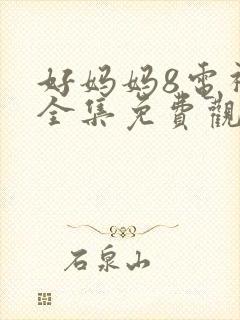 好妈妈8电
全集免費觀
石泉山